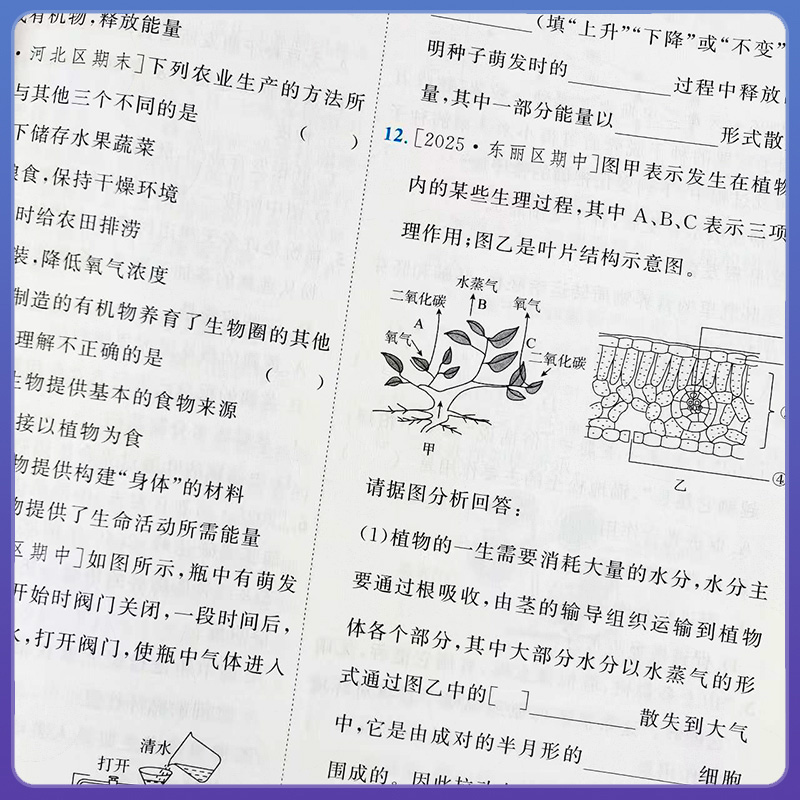 有机物,释放能量
·河北区期末]下列农业生产的方法所
与其他三个不同的是
( )
下储存水果蔬菜
粮食,保持干燥环境
时给农田排涝
装,降低氧气浓度
制造的有机物养育了生物圈的其他
理解不正确的是
( )
生物提供基本的食物来源
接以植物为食
物提供构建“身体”的材料
物提供了生命活动所需能量
区期中]如图所示,瓶中有萌发
开始时阀门关闭,一段时间后,
水,打开阀门,使瓶中气体进入
清水
打开
(填“上升”“下降”或“不变”
明种子萌发时的________过程中释放
量,其中一部分能量以________形式散
12.[2025·东丽区期中]图甲表示发生在植物
内的某些生理过程,其中 A、B、C 表示三项
理作用;图乙是叶片结构示意图。
水蒸气
二氧化碳 B 氧气
A
氧气
C
二氧化碳
甲
乙
④
请据图分析回答:
(1)植物的一生需要消耗大量的水分,水分主
要通过根吸收,由茎的输导组织运输到植物
体各个部分,其中大部分水分以水蒸气的形
式通过图乙中的[ ]________散失到大气
中,它是由成对的半月形的________细胞
围成的。因此